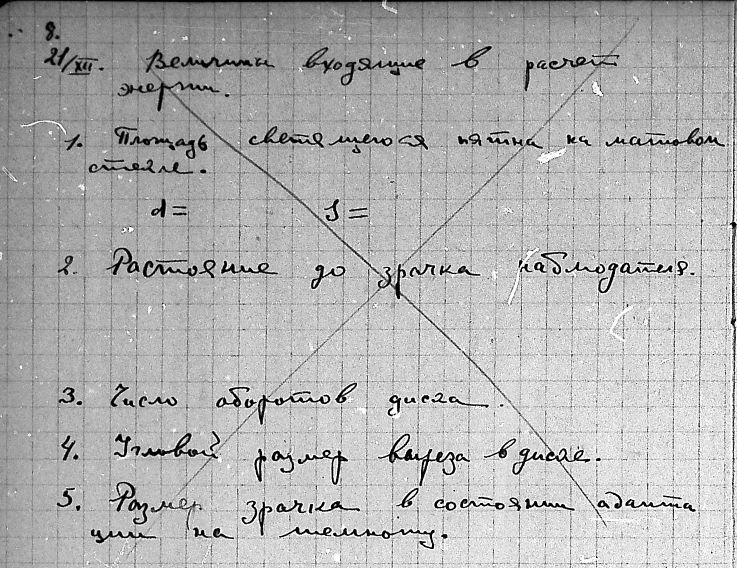 8.
21/XII. Величины входящие в расчет
энергии.
1. Площадь светящегося пятна на матовом
стекле.
d= S=
2. Растояние до зрачка наблюдателя.
3. Число оборотов диска.
4. Угловой размер выреза в диске.
5. Размер зрачка в состоянии адапта
ции на темноту.